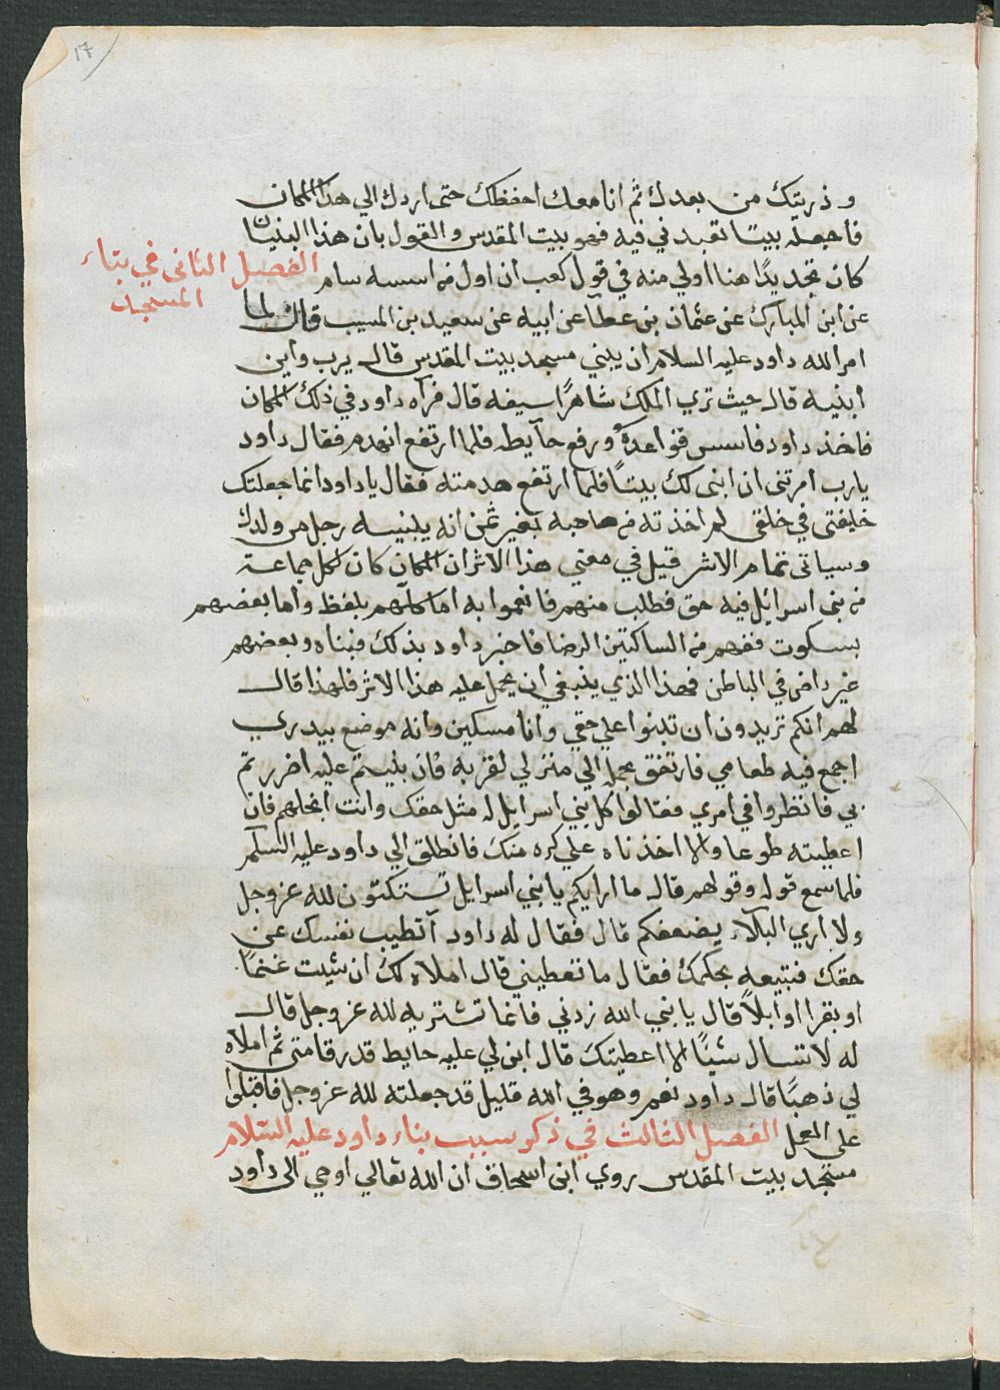 ١٧
وذريتك من بعدك ثم انا معك احفظك حتى اردك الي هذا المكان
فاجعله بيتا تعبدني فيه فهو بيت المقدس والقول بان هذا البنيان
كان تجديدًا هنا اولي منه في قول كعب ان اول من اسسه سام الفصل الثانى في بناء
المسجد
عن ابن المبارك عن عثمان بن عطآ عن ابيه عن سعيد بن المسيب قال لما
امر الله داود عليه السلام ان يبني مسجد بيت المقدس قال يرب واين
ابنيه قال حيث تري الملك شاهرًا سيفه قال فرآه داود في ذلك المكان
فاخذ داود فاسس قواعدهُ ورفع حآيطه فلما ارتفع انهدم فقال داود
يارب امرتنى ان ابنى لك بيتًا فلما ارتفع هدمته فقال ياداود انما جعلتك
خليفتى في خلقى لم اخذته من صاحبه بغير ثمن انه يبنيه رجل من ولدك
وسياتى تمام الاثر قيل في معني هذا الاثر ان المكان كان لكل جماعة
من بنى اسرائيل فيه حق فطلب منهم فانعموا به اما كلهم بلفظ واما بعضهم
بسكوت ففهم من الساكتين الرضا فاخبر داود بذلك فبناه وبعضهم
غير راض في الباطن فهذا الذي ينبغي أن يحمل عليه هذا الاثر فلهذا قال
لهم انكم تريدون ان تبنوا علي حقي وانا مسكين وانه موضع بيدري
اجمع فيه طعامي فارتفق بحمله الي منزلي لقربه فان بنيتم عليه اضررتم
بي فانظروا في امري فقالوا كل بني اسرايل له مثل حقك وانت ابخلهم فان
اعطيته طوعا والا اخذناه علي كره منك فانطلق الي داود عليه السلم
فلما سمع قوله وقولهم قال ما اراكم يا بني اسرايل تستكنون لله عزوجل
ولا اري البلآء يضعفكم قال فقال له داود آتطيب نفسك عن
حقك فتبيعه بحكمك فقال ما تعطيني قال املاه لك ان شيت غنمًا
او بقرا او ابلاً قال يا نبي الله زدني فانما تشتريه لله عزوجل قال
له لا تسال شيًا الا اعطيتك قال ابن لي عليه حايط قدر قامتي ثم املاه
لي ذهبًا قال داود نعم وهو في الله قليل قد جعلته لله عزوجل فاقبلوا
على العمل الفصل الثالث في ذكر سبب بناء داود عليه السلام
مسجد بيت المقدس روي ابن اسحاق ان الله تعالي اوحي الى داود